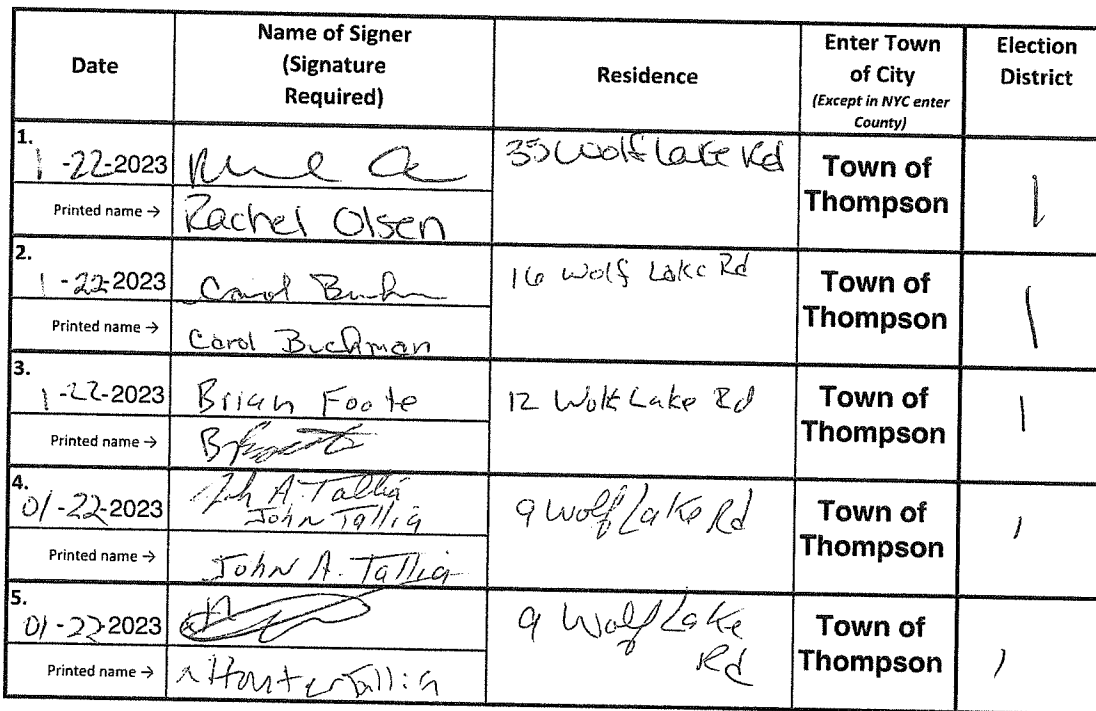 Date
Name of Signer
(Signature
Required)
Residence
Enter Town
of City
(Except in NYC enter
County)
Election
District
1.
1-22-2023
35 Wolf Lake Rd
Town of
Thompson
1
Printed name →
Rachel Olsen
2.
1-22-2023
Carol
16 Wolf Lake Rd
Town of
Thompson
1
Printed name →
Carol Buchman
3.
1-22-2023
Brian Foote
12 Wolf Lake Rd
Town of
Thompson
1
Printed name →
4.
01-22-2023
John A. Tallia
John Tallia
9 Wolf Lake Rd
Town of
Thompson
1
Printed name →
John A. Tallia
5.
01-22-2023
9 Wolf Lake
Rd
Town of
Thompson
1
Printed name →
x Hunter Tallia